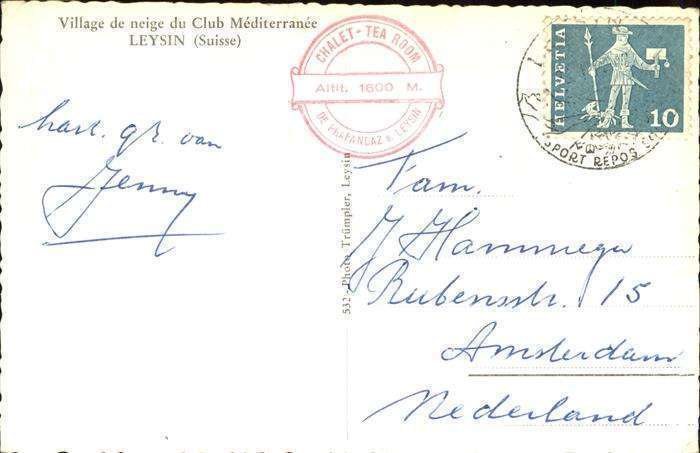 Village de neige du Club Méditerranée
LEYSIN (Suisse)
CHALET - TEA ROOM
Altit. 1600 M.
DE PRAFANDAZ s. LEYSIN
HELVETIA
10
SPORT REPOS
hart. gr. van
Jenny
532 - Photo Trümpler, Leysin
Fam.
J Hammega
Rubensstr. 15
Amsterdam
Nederland